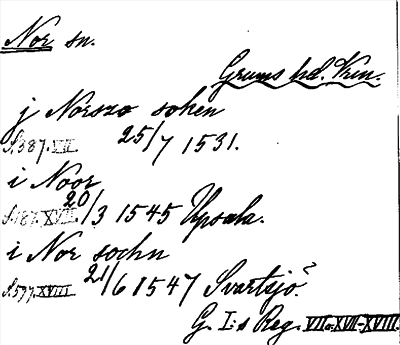 Nor sn.
Grums hd. Vrm.
j Norszo soken
S.387.VII. 25/7 1531.
i Noor
S.187.XVII. 20/3 1545 Upsala.
i Nor sochn
S.577.XVIII 21/6 1547 Svartsjö.
G. I:s Reg. VII o. XVII-XVIII.